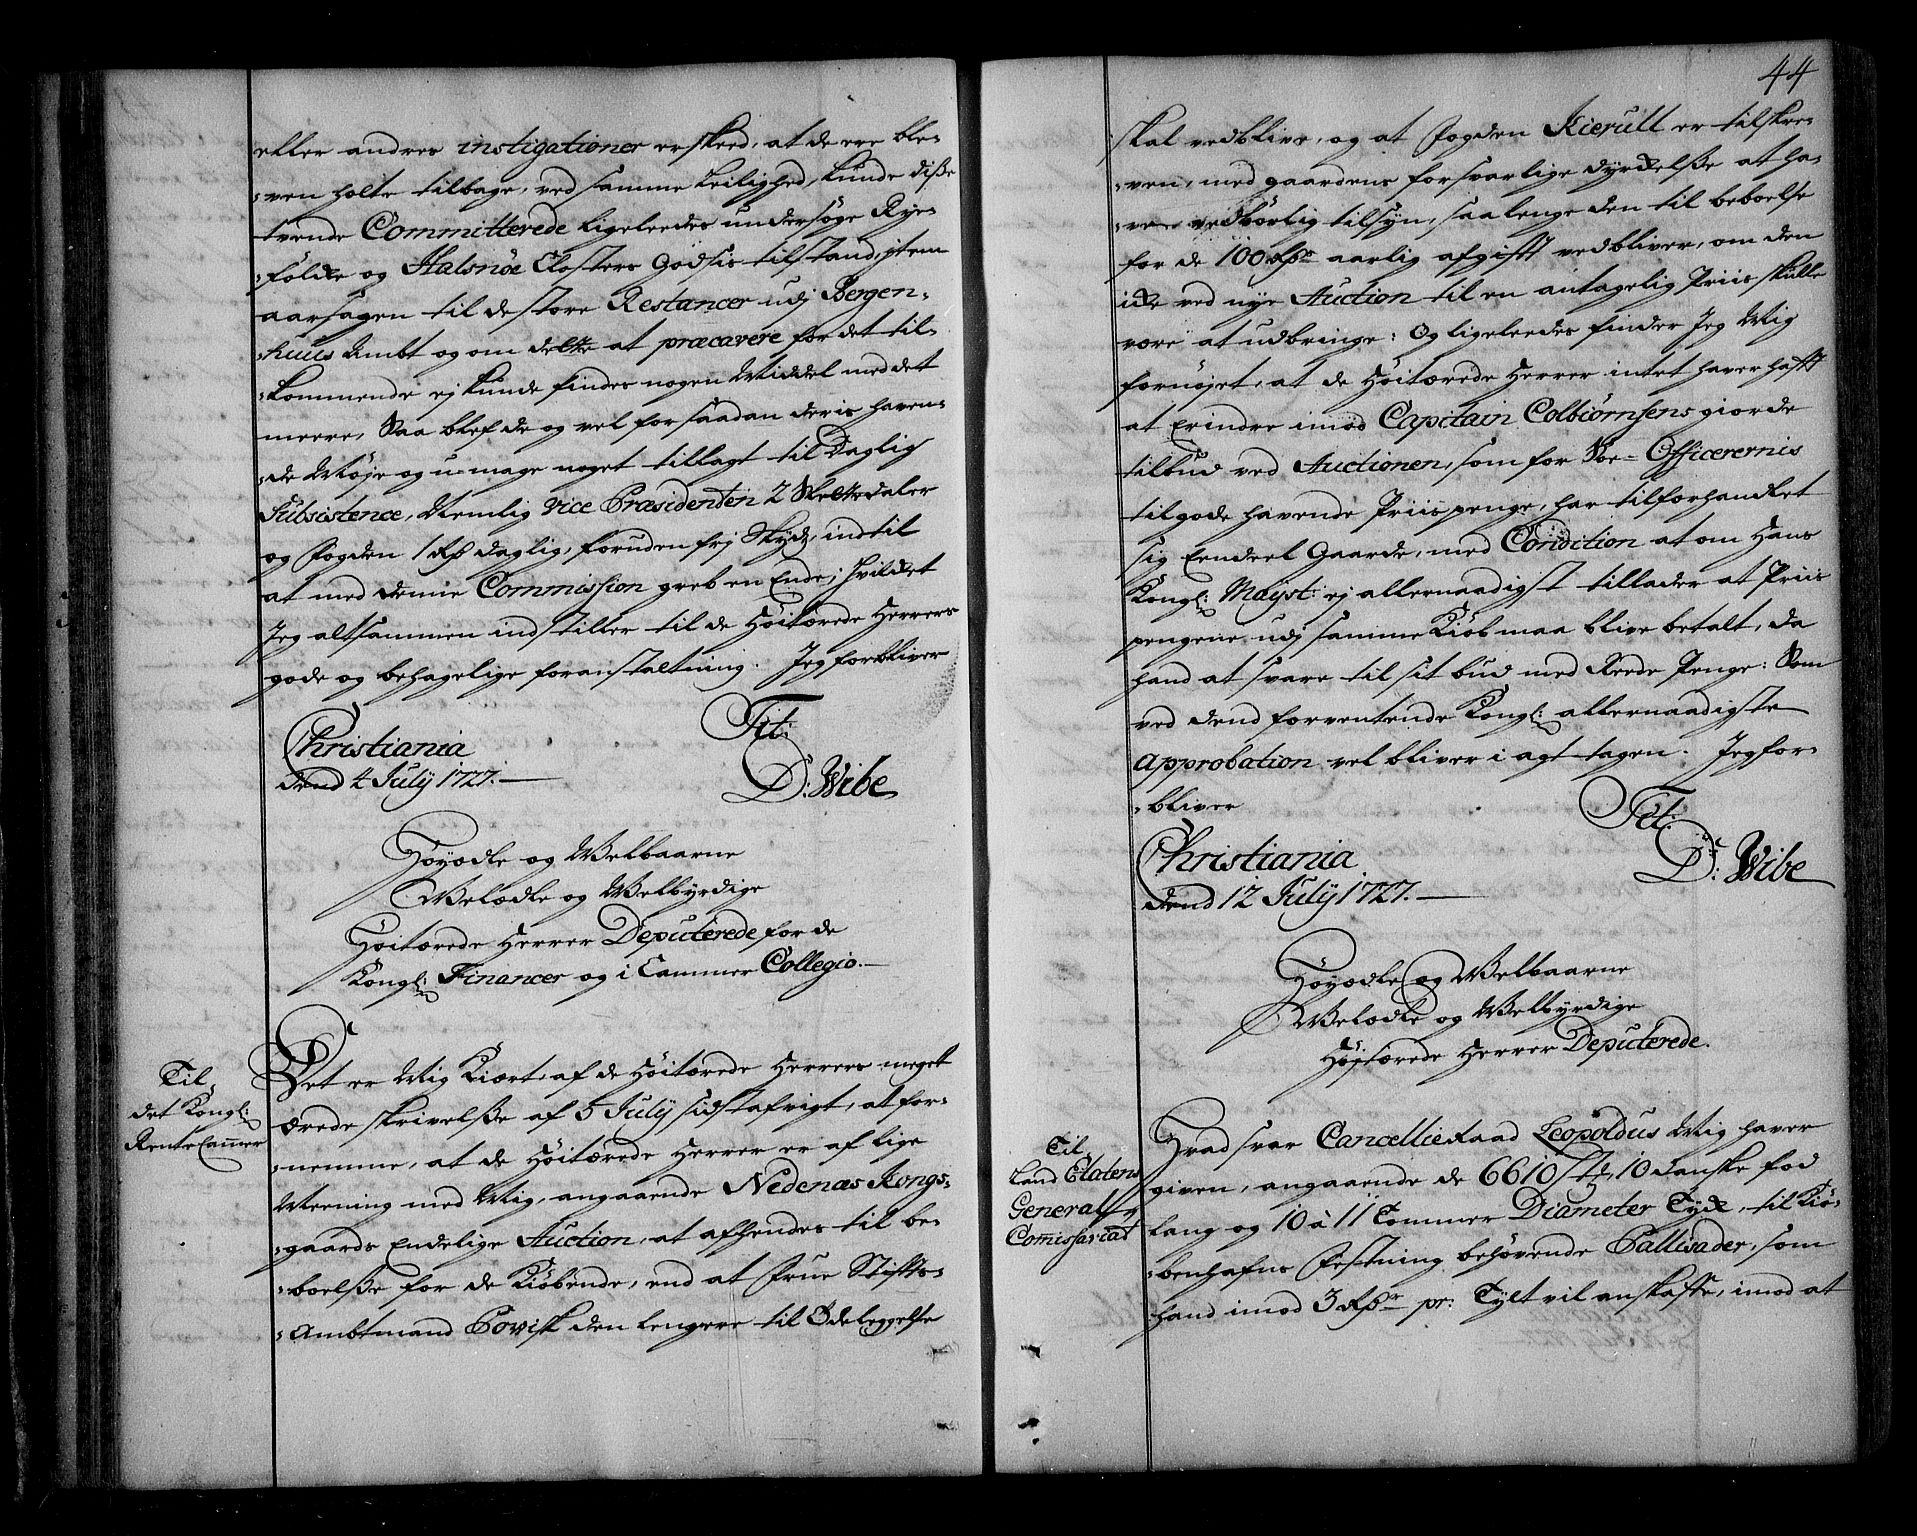 eller andres instigationer er skeed, at de ere ble-
ven holte tilbage, ved samme Leilighed, kunde disse
tvende Committerede ligeleedes undersøge Rye-
folke og Halsnøe Closters Godsis tilstand, jtem
aarsagen til de store Restancer udj Bergen-
huus Ambt og om dette at præcavere for det til-
kommende ej kunde findes nogen Middel med det
meere, Saa blef de og vel for saadan deris haven-
de Møje og umage noget tillagt til Daglig
Subsistence, Nemlig Vice Præsidenten 2 Slettedaler
og Fogden 1 Rdr daglig, foruden frj Skyds, indtil
at med denne Commission greb en Ende; hvilket
Jeg altsammen indstiller til de Høitærede Herrers
gode og behagelige foranstaltning. Jeg forbliver
Tit:
Christiania
dend 4 July 1727.
D: Wibe
Høyædle og Welbaarne
Welædle og Welbyrdige
Høitærede Herrer Deputerede for de
Kongl: Financer og i Cammer Collegio.
Til
det Kongl:
Rente Cammer
Det er Mig kiært, af de Høitærede Herrers meget
ærede skrivelse af 5 July sidst afvigt, at for-
nemme, at de Høitærede Herrer er af lige
Meening med Mig, angaaende Nedenæs Kongs-
gaards Endelige Auction, at afhendes til be-
boelse for de Kiøbende, end at Frue Stifts-
Ambtmand Povisk den lengere til Ødeleggelse
44
skal vedblive, og at Fogden Kierulf er tilskre-
ven, med gaardens forsvarlige dyrkelse at ha-
ve vedbørlig tilsyn, saalenge den til beboelse
for de 100 Rdr aarlig afgift vedbliver, om den
icke ved nye Auction til en antagelig Priis skulle
være at udbringe: Og ligeleedes finder Jeg Mig
fornøjet, at de Høitærede Herrer intet haver haft
at Erindre imod Capitain Colbiørnsens giorde
tilbud ved Auctionen, som for Søe-Officerernis
tilgode havende Priis penge, har tilforhandlet
sig Eendeel Gaarde, med Condition at om Hans
Kongl: Mayst: ej allernaadigst tillader at Priis
pengene udj samme Kiøb maa blive betalt, da
hand at svare til sit bud med Reede Penge: Som
ved dend forventende Kongl: allernaadigste
Approbation vel bliver i agt tagen. Jeg for-
bliver
Tit:
Christiania
dend 12 July 1727.
D: Wibe
Høyædle og Welbaarne
Welædle og Welbyrdige
Højtærede Herrer Deputerede.
Til
Land Etatens
General
Comissariat
Hvad svar CancellieRaad Leopoldus Mig haver
given, angaaende de 6610 St: 10 danske fod
lang og 10 à 11 Tommer Diameter Tyck, til Kiø-
benhafns Festning behøvende Pallisader, som
hand imod 3 Rdr pr: Tylt vil anskaffe, imod at